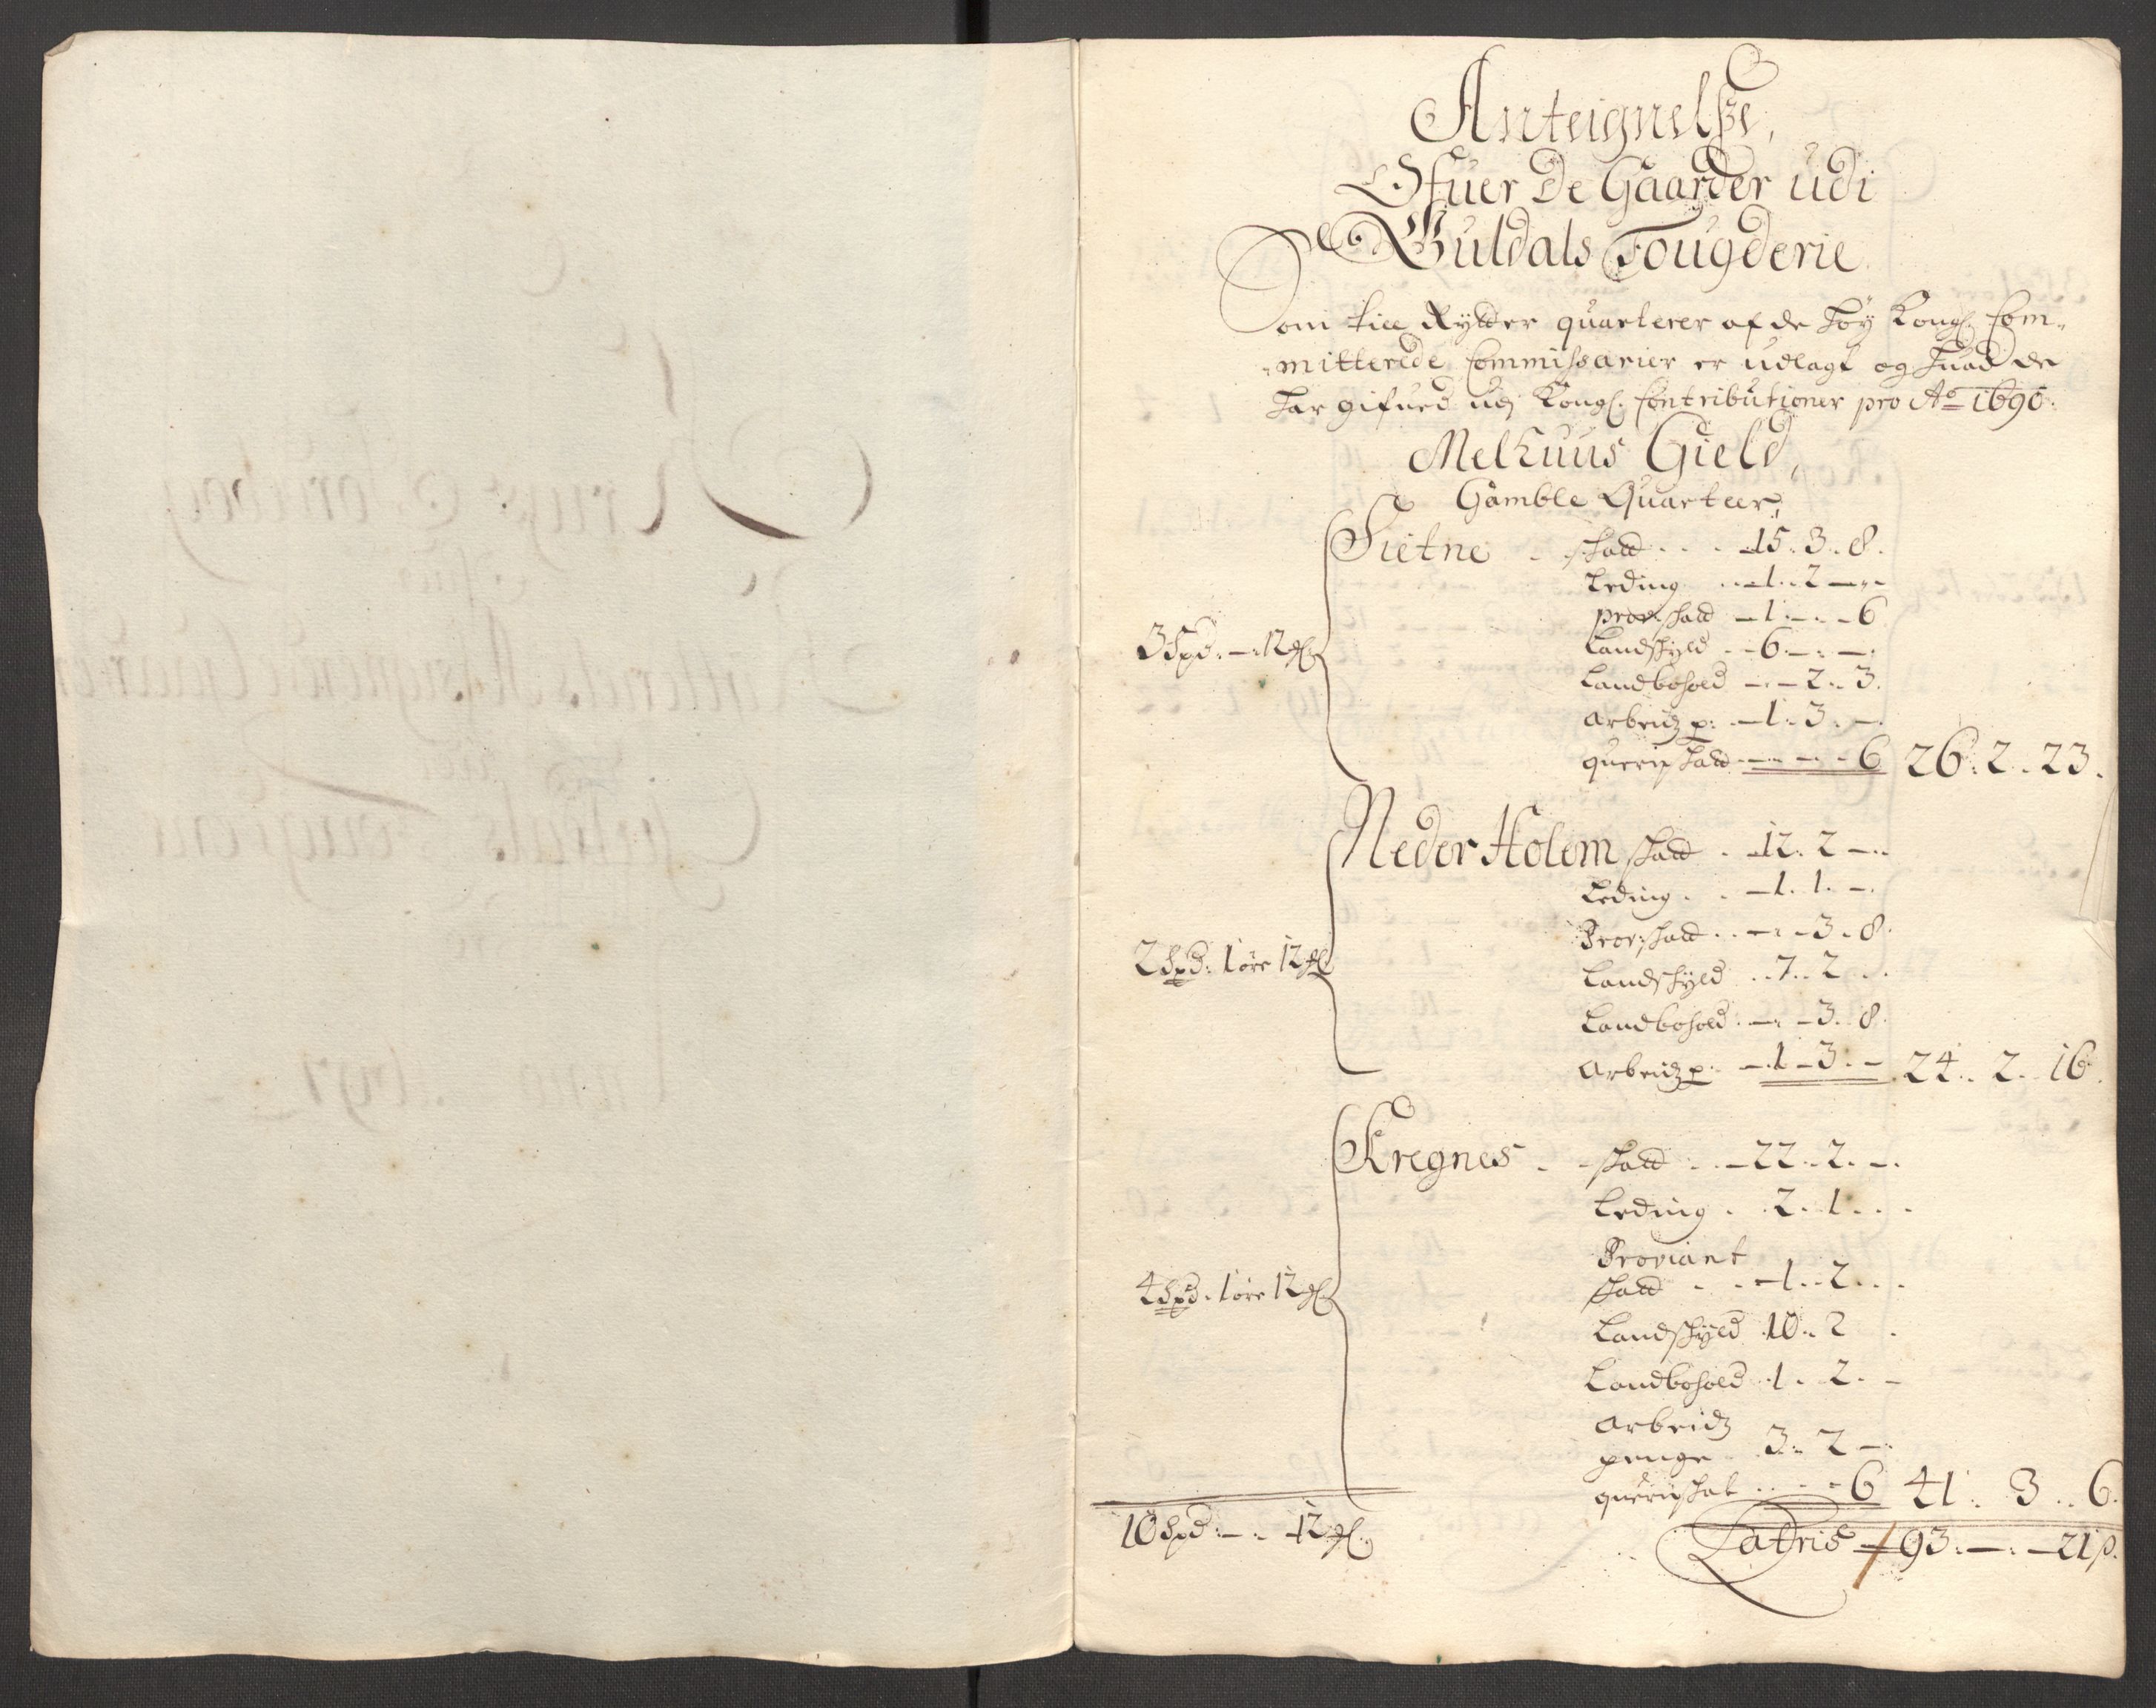 Anteignelse,
Ofuer De Gaarder udi
Guldals Fougderie
Som till Rytter quarterer af de höy Kongl: Com-
mitterede Commissarier er udlagt og huad de
har gifued udj Kongl: Contributioner pro Ao 1690.
Melhuus Gield,
Gamble Quarteer,
Sietne . skatt . . . 15. 3. 8.
Leding . . 1. 2 —
prov: skatt — 1. — . 6
3 Spd: — : 12 ₰ Landskyld . . 6. — . —
Landbohold — . — 2. 3.
arbeidz p: . — 1. 3. — .
querin skatt — . — . 6 26. 2. 23.
Neder Holem skatt . 12. 2 — .
Leding . . — 1. 1. — .
Prov: skatt . . — . 3. 8.
2 Spd: 1 öre 12 ₰ Landskyld . . 7. 2 . .
Landbohold . — . 3. 8.
arbeidz p: — 1 — 3. — 24. 2. 16.
Kregnes . . skatt . . 22. 2. — .
Leding . 2. 1. . .
Proviant
4 Spd. 1 öre 12 ₰ skatt . . . 1. 2. . .
Landskyld 10. 2 .
Landbohold 1. 2. —
arbeidz
penge . 3. 2 — .
querinskat . . . 6 41. 3. 6.
10 Spd: — . 12 ₰. Latris — 93. — . — 21 ß.